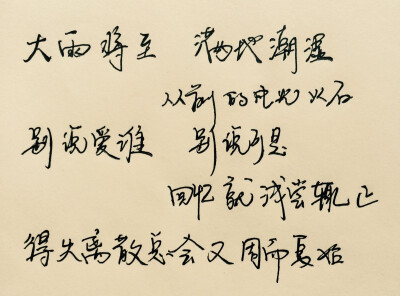 大雨将至 满地潮湿
从前的电光火石
别说爱谁 别说可惜
回忆就浅尝辄止
得失离散总会又周而复始